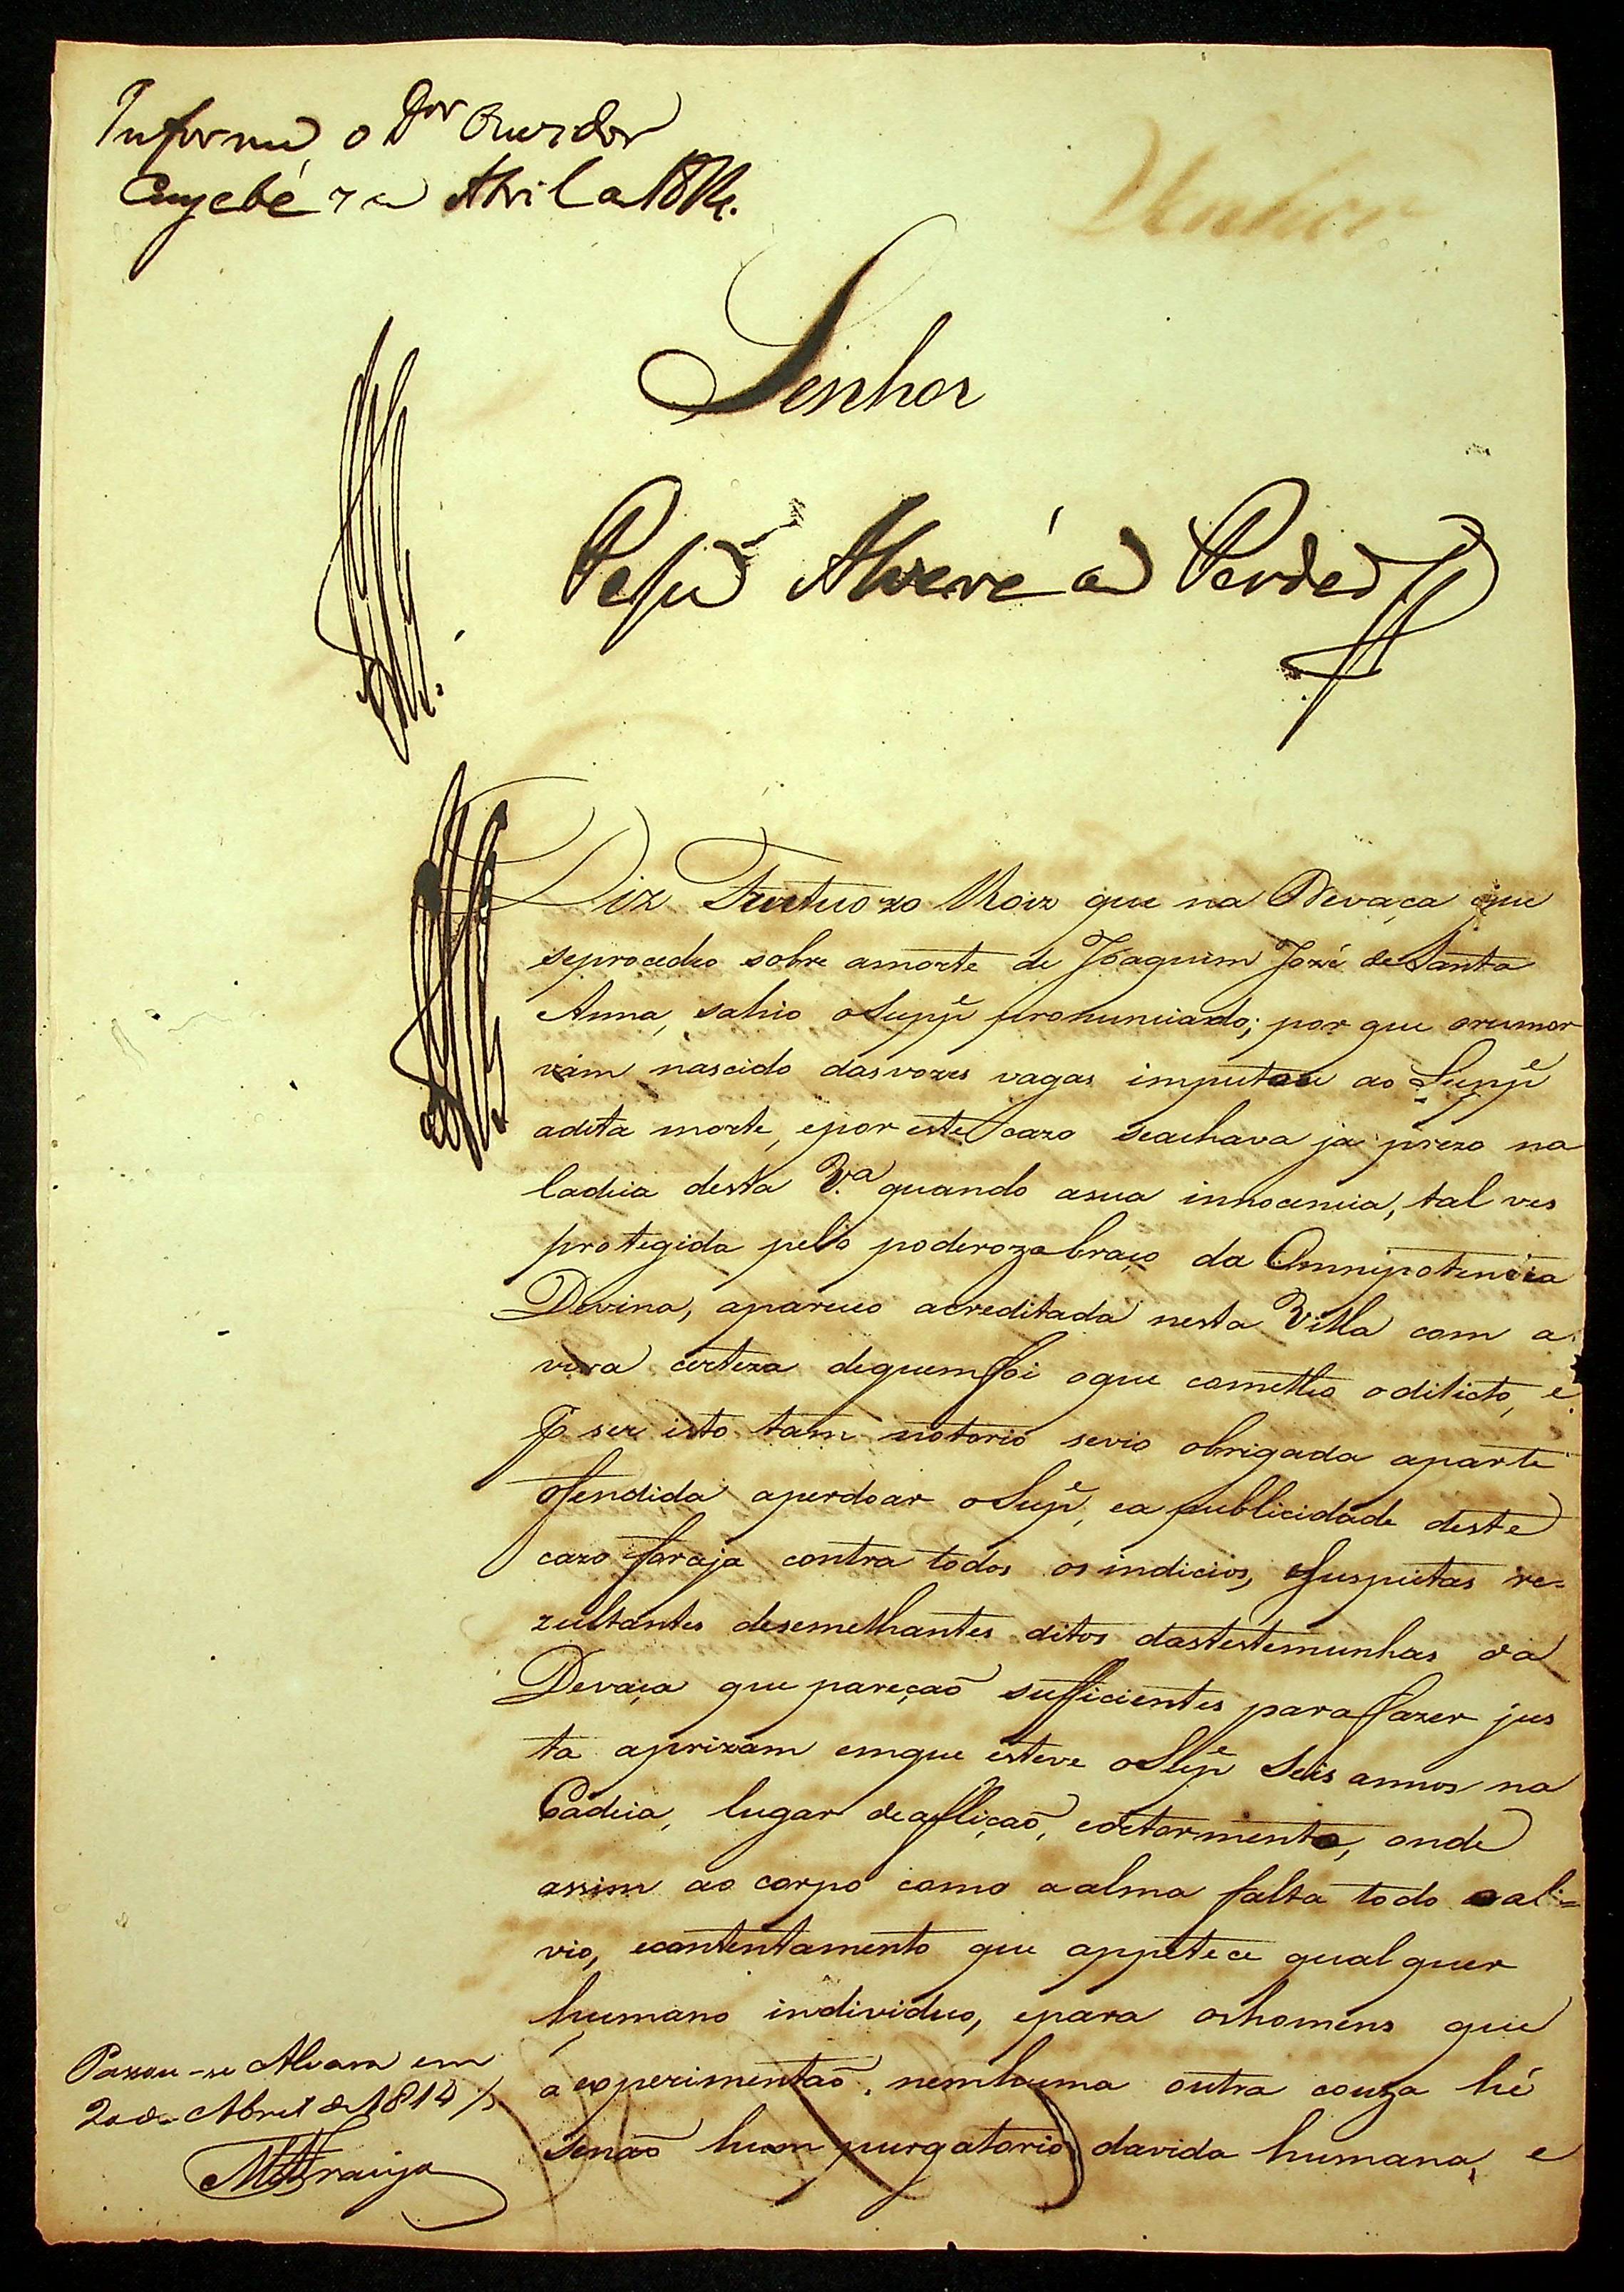 Informe o Dor Ouvidor
Cuyabá 7 de Abril de 1814.
Senhor
Senhor
Passe Alvará de Perdão
Diz Fructuozo Roiz que na Devaça que
seprocedeo sobre amorte de Joaquim Jozé de Santa
Anna, sahio oSuppe pronunciado; por que orumor
vam nascido dasvozes vagas imputou ao Suppe
adita morte, epor este cazo seachava ja prezo na
Cadeia desta Va quando asua innocencia, tal ves
protegida pelo poderozo braço da Omnipotencia
Devina, apareceo acreditada nesta Villa com a
vera certeza dequem foi oque cometteo odilicto, e
P ser isto tam notorio sevio obrigada aparte
ofendida aperdoar oSupe, ea publicidade deste
cazo foraja contra todos os indicios, esuspeitas re=
zultantes desemelhantes ditos dastestemunhas da
Devaça que pareçaõ sufficientes para fazer jus
ta aprizam emque esteve oSupe Seis annos na
Cadeia, lugar deafliçaõ, edetormento, onde
assim ao corpo como aalma falta todo oali=
vio, econtentamento que appetece qual quer
humano individuo, epara oshomens que
aexperimentaõ, nemhuma outra couza hé
senaõ hum purgatorio davida humana, e
Passou-se Alvara em
20 de Abril de 1814
MAraujo